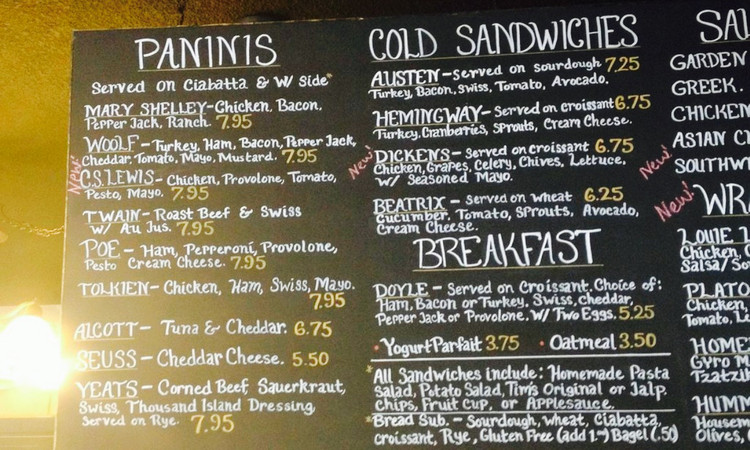 PANINIS
Served on Ciabatta & W/ Side*
MARY SHELLEY-Chicken, Bacon,
Pepper Jack, Ranch. 7.95
WOOLF- Turkey, Ham, Bacon, Pepper Jack,
Cheddar, Tomato, Mayo, Mustard. 7.95
New
C.S. LEWIS- Chicken, Provolone, Tomato,
Pesto, Mayo. 7.95
TWAIN- Roast Beef & Swiss
W/ Au Jus. 7.95
POE- Ham, Pepperoni, Provolone,
Pesto Cream Cheese. 7.95
TOLKIEN- Chicken, Ham, Swiss, Mayo.
7.95
ALCOTT- Tuna & Cheddar. 6.75
SEUSS- Cheddar Cheese. 5.50
YEATS- Corned Beef, Sauerkraut,
Swiss, Thousand Island Dressing,
Served on Rye. 7.95
COLD SANDWICHES
AUSTEN-Served on sourdough 7.25
Turkey, Bacon, Swiss, Tomato, Avocado.
HEMINGWAY-Served on croissant 6.75
Turkey, Cranberries, Sprouts, Cream Cheese.
New
DICKENS- Served on croissant 6.75
Chicken, Grapes, Celery, Chives, Lettuce.
W/ Seasoned Mayo.
BEATRIX- Served on wheat 6.25
Cucumber, Tomato, Sprouts, Avocado,
Cream Cheese.
BREAKFAST
DOYLE- Served on Croissant. Choice of:
Ham, Bacon or Turkey. Swiss, Cheddar,
Pepper Jack or Provolone. W/ Two Eggs. 5.25
• Yogurt Parfait 3.75 • Oatmeal 3.50
*All Sandwiches include: Homemade Pasta
Salad, Potato Salad, Tim's Original or Jalp.
Chips, Fruit Cup, or Applesauce.
*Bread Sub. - Sourdough, Wheat, Ciabatta,
Croissant, Rye, Gluten Free (add 1.-) Bagel (.50)
SAL
GARDEN
GREEK.
CHICKEN
ASIAN C
New
SOUTHW
New
WR
LOUIE L
Chicken, C
Salsa/So
PLATO
Chicken
Tomato, L
HOME
Gyro M
Tzatzik
HUMM
Housem
Olives,